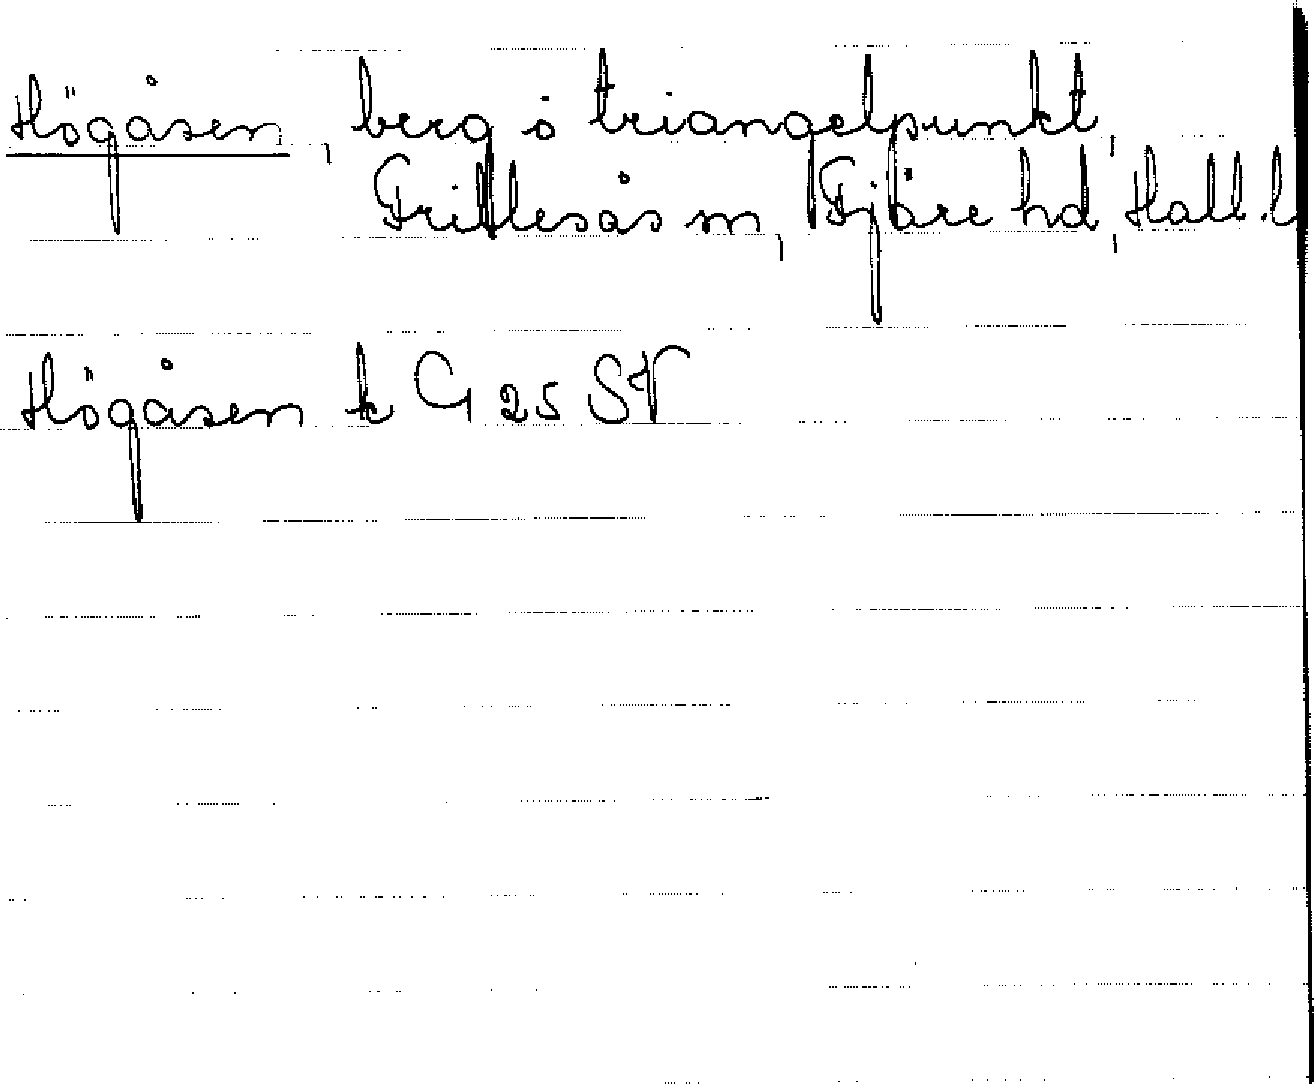 Högåsen, berg o triangelpunkt,
Frillesås sn, Fjäre hd, Hall. l
Högåsen tc G 25 SV